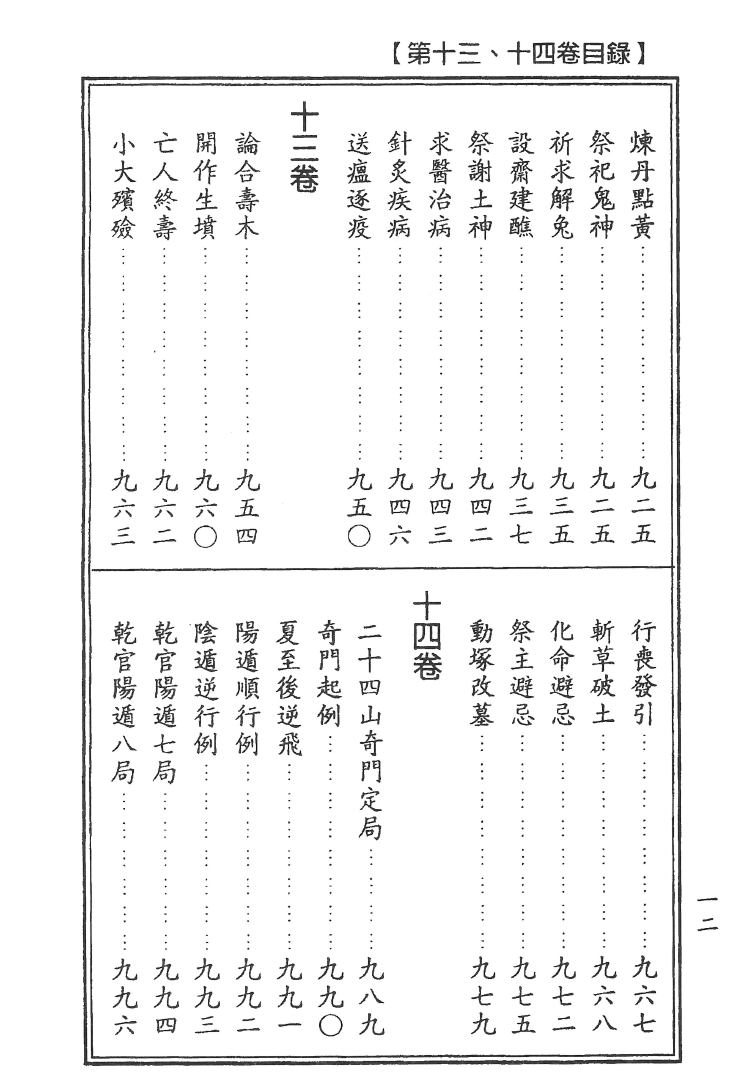 【第十三、十四卷目錄】
煉丹點黃……………………九二五
祭祀鬼神……………………九二五
祈求解兔……………………九三五
設齋建醮……………………九三七
祭謝土神……………………九四二
求醫治病……………………九四三
針炙疾病……………………九四六
送瘟逐疫……………………九五〇
十三卷
論合壽木……………………九五四
開作生墳……………………九六〇
亡人終壽……………………九六二
小大殯殮……………………九六三
行喪發引……………………九六七
斬草破土……………………九六八
化命避忌……………………九七二
祭主避忌……………………九七五
動塚改墓……………………九七九
十四卷
二十四山奇門定局…………九八九
奇門起例……………………九九〇
夏至後逆飛…………………九九一
陽遁順行例…………………九九二
陰遁逆行例…………………九九三
乾官陽遁七局………………九九四
乾官陽遁八局………………九九六
一二